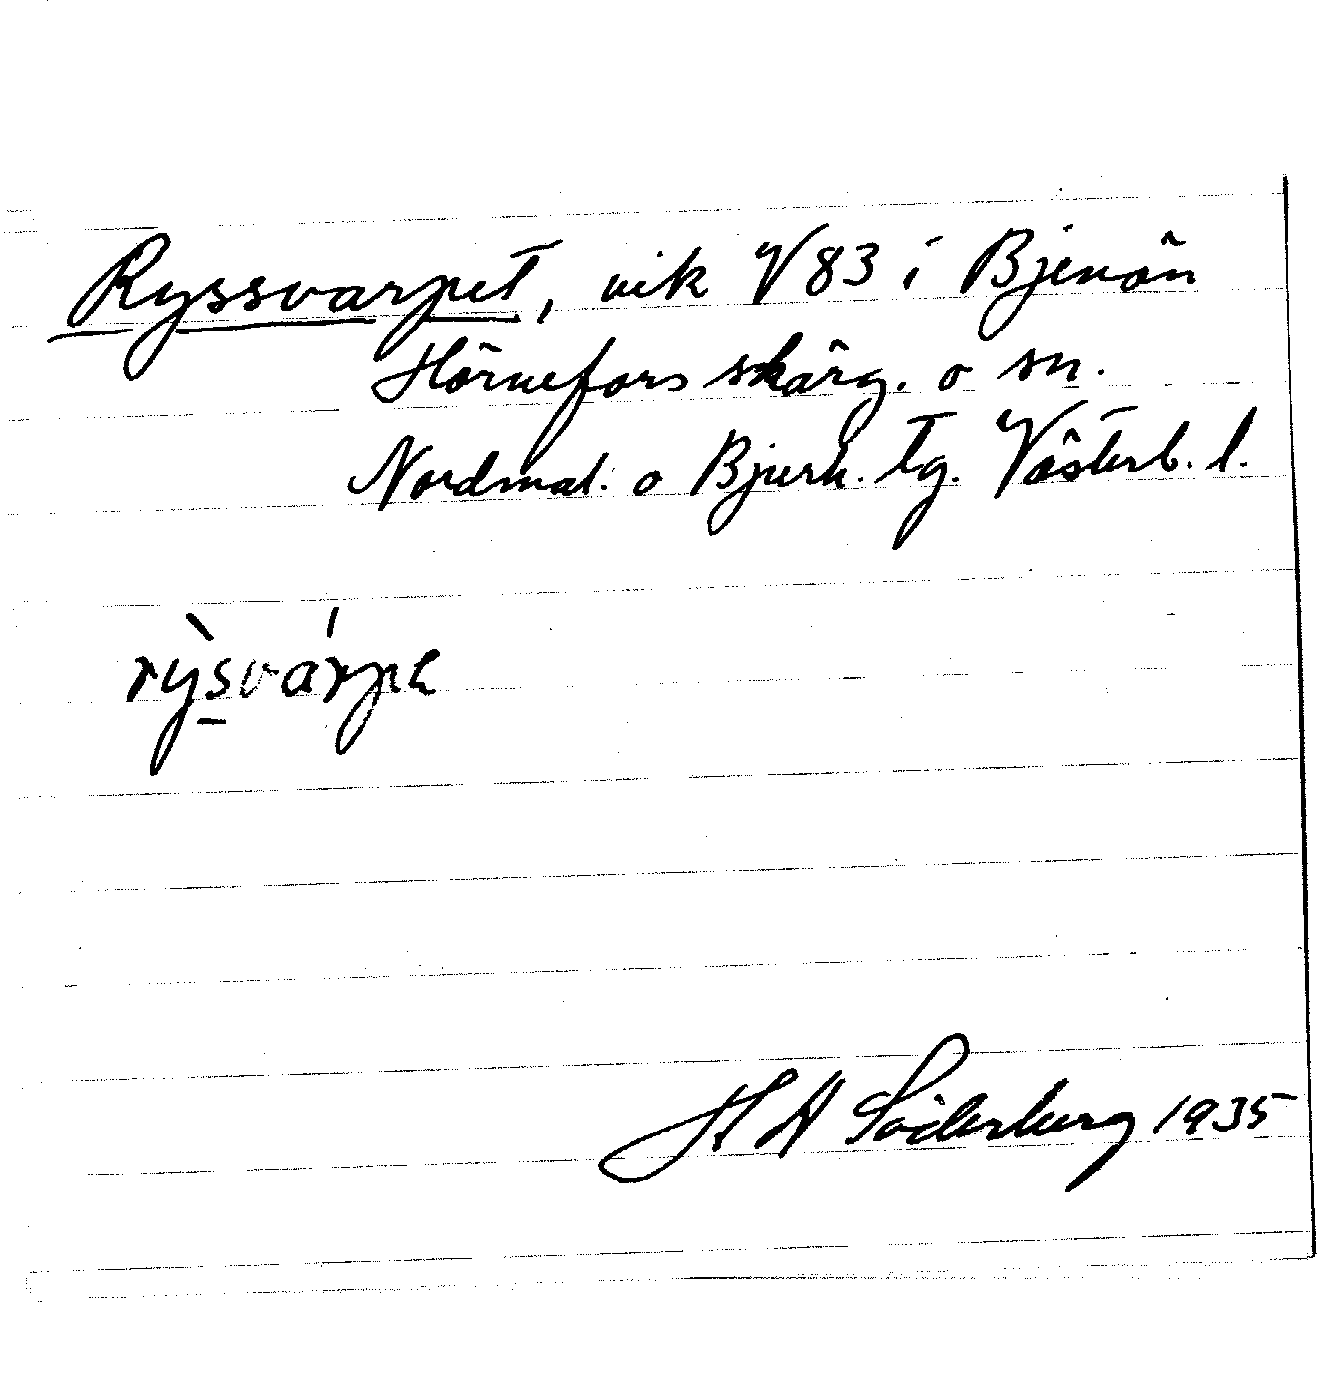 Ryssvarpet, vik V83 i Bjenön
Hörnefors skärg. o sn.
Nordmal. o Bjurh. tg. Västerb. l.
rỳsvárpe
H A Söderberg 1935